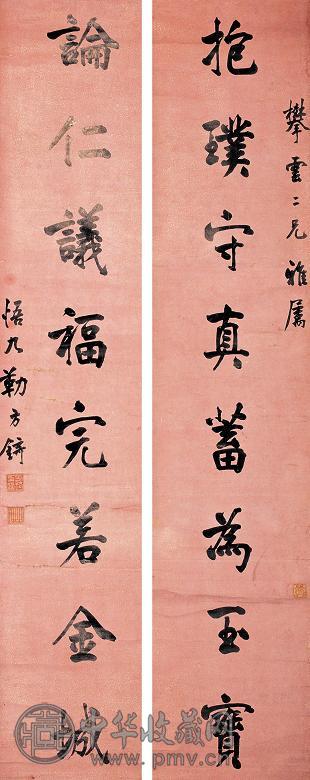 攀雲二兄雅屬
抱璞守真蓄為玉寶
論仁議福完若金城
悟九勒方錡
中华收藏网
www.pmv.cn